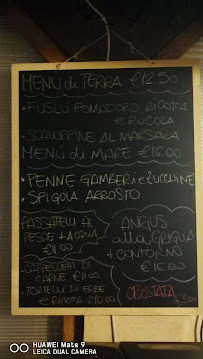 MENÙ di TERRA €12.50
• FUSILLI POMODORO RICOTTA
e RUCOLA
• SCALOPPINE AL MARSALA
MENÙ di MARE €16.00
• PENNE GAMBERI e ZUCCHINE
• SPIGOLA ARROSTO
PASSATELLI AL
PESCE + ACQUA
€11.00
• CAPPELLETTI DI
CARNE €11.00
• TORTELLI DI ERBE
e RICOTTA €10.00
ANGUS
alla GRIGLIA
+ CONTORNO
€16.00
CROSTATA
€3.00
HUAWEI Mate 9
LEICA DUAL CAMERA